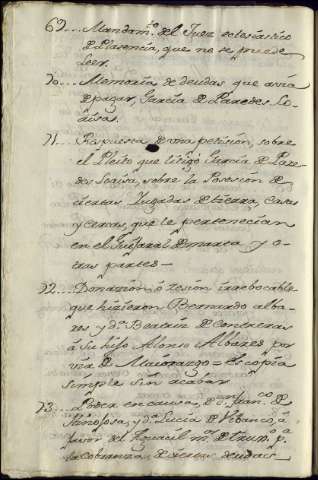 69.... Mandam.to del Juez eclesiastico
de Plasencia, que no se puede
Leer.
70.... Memoria de deudas que avia
de pagar, Garcia de Paredes Lo-
aisa.
71.... Respuesta de una petision, sobre
el Pleito que litigo Garcia de Pare-
des Loaisa, sobre la Posesion de
ciertas Yugadas de tierra, casas
y censos, que le pertenecian
en el Guijarral de marta y o-
tras partes —
72.... Donacion ó zesion irrebocable
que hizieron Bernardo alba-
res y d.a Beatriz de Contreras
á su hijo Alonso Albares por
via de Maiorazgo = Es copia
simple sin acabar
73.... Poder en causa, de d.n Fran.co de
Hinojosa, y d.a Lucia de Vibanco, á
favor del Aguacil m.r de Trux.o p.a
la cobranza de ciertas deudas